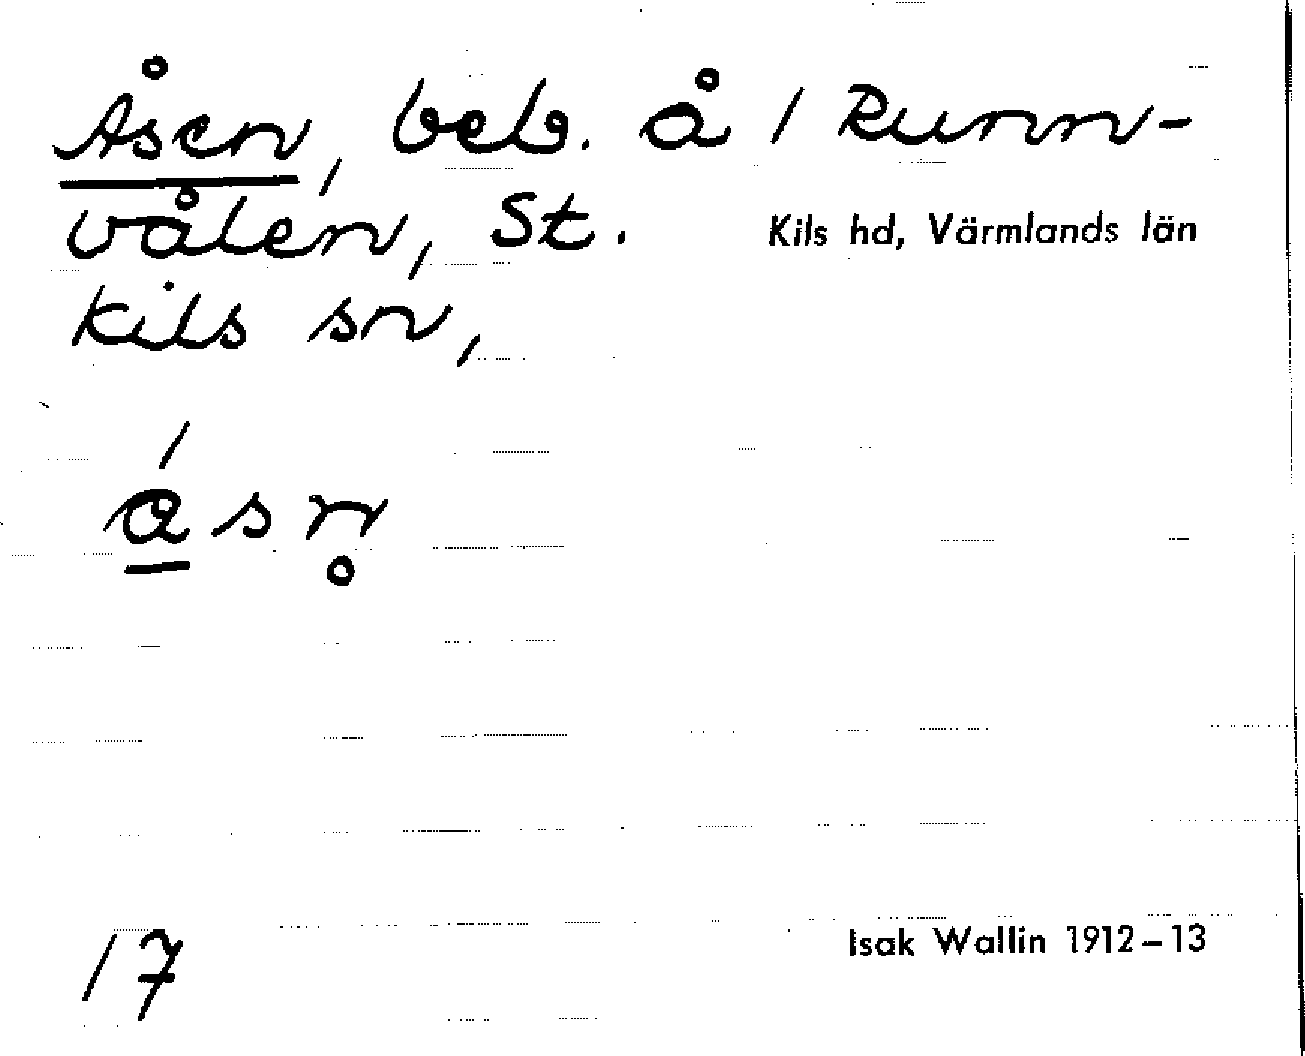 Åsen, beb. å 1 Runn-
vålen, St.
Kils hd, Värmlands län
Kils sn,
ásn̥
17
Isak Wallin 1912–13